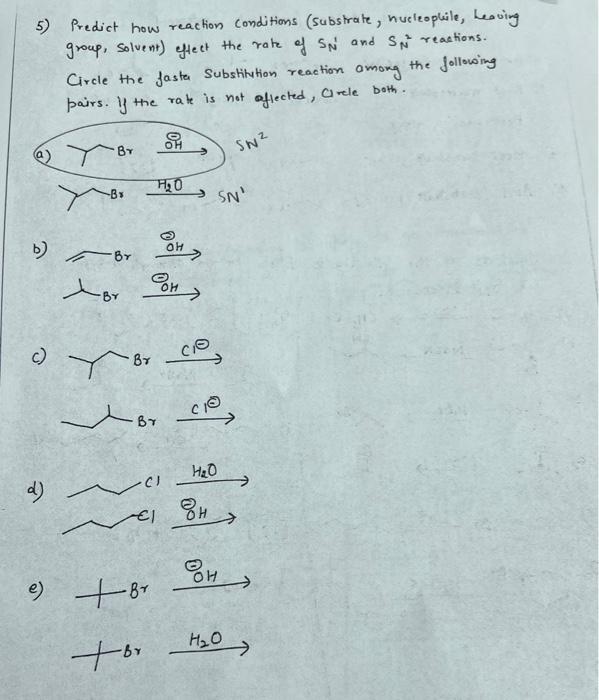 5) Predict how reaction conditions (substrate, nucleophile, Leaving
group, Solvent) effect the rate of SN¹ and SN² reactions.
Circle the faster Substitution reaction among the following
pairs. If the rate is not affected, Circle both.
a) Br ⊖OH SN²
Br H₂O SN¹
b) Br ⊖OH
Br ⊖OH
c) Br Cl⊖
Br Cl⊖
d) Cl H₂O
Cl ⊖OH
e) Br ⊖OH
Br H₂O